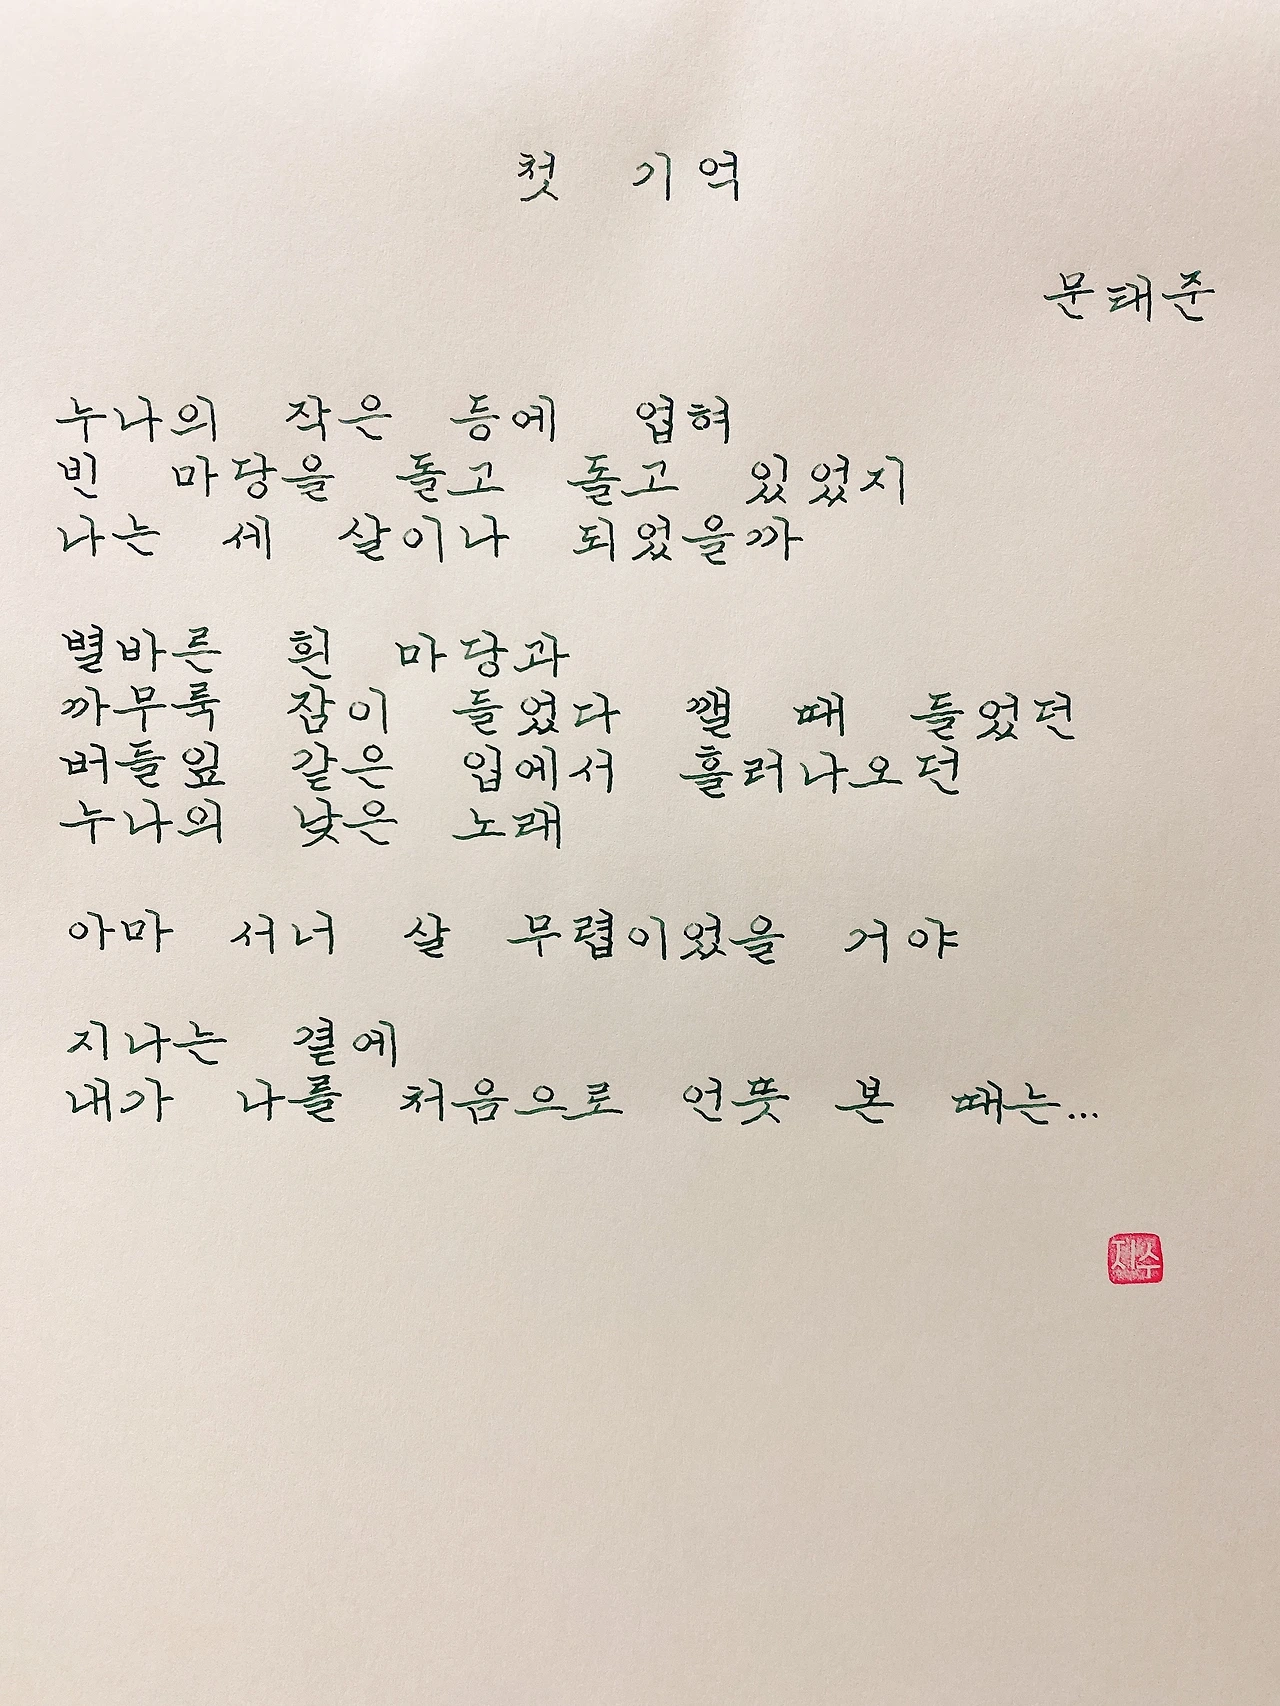 첫 기억
문태준
누나의 작은 등에 업혀
빈 마당을 돌고 돌고 있었지
나는 세 살이나 되었을까
볕바른 흰 마당과
까무룩 잠이 들었다 깰 때 들었던
버들잎 같은 입에서 흘러나오던
누나의 낮은 노래
아마 서너 살 무렵이었을 거야
지나는 결에
내가 나를 처음으로 언뜻 본 때는...
재수